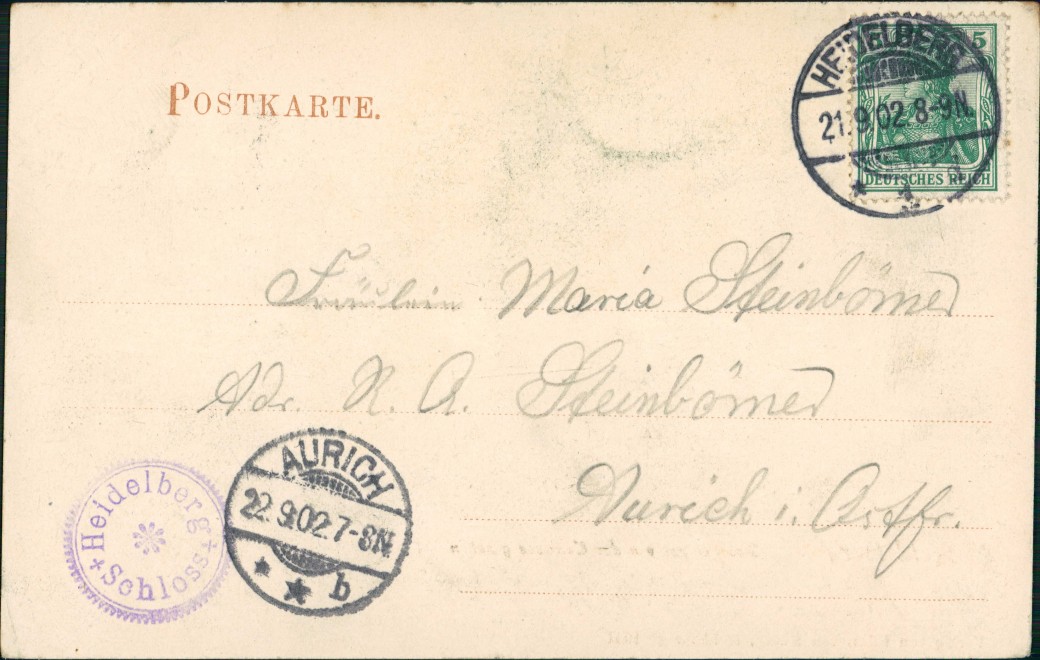 POSTKARTE.
HEIDELBERG
21.9.02.8-9N.
5
DEUTSCHES REICH
Fräulein Maria Steinbömer
Adr. R. A. Steinbömer
Aurich i. Ostfr.
AURICH
22.9.02.7-8N
b
Heidelberg
Schloss